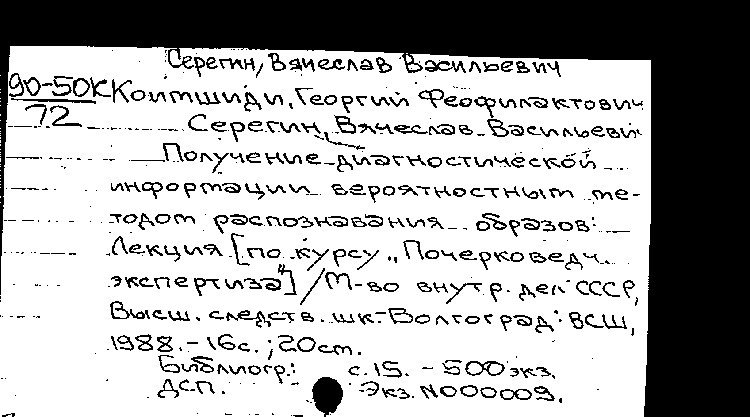 Серегин, Вячеслав Васильевич
90-50К Коимшиди, Георгий Феофилактович
72 Серегин, Вячеслав Васильеви
Получение диагностической
информации вероятностным ме-
тодом распознавания образов:
Лекция [по курсу „Почерковедч.
экспертиза"] / М-во внутр. дел СССР,
Высш. следств. шк.- Волгоград: ВСШ,
1988. - 16с.; 20см.
Библиогр.: с. 15. - 500 экз.
ДСП. Экз. N000009.